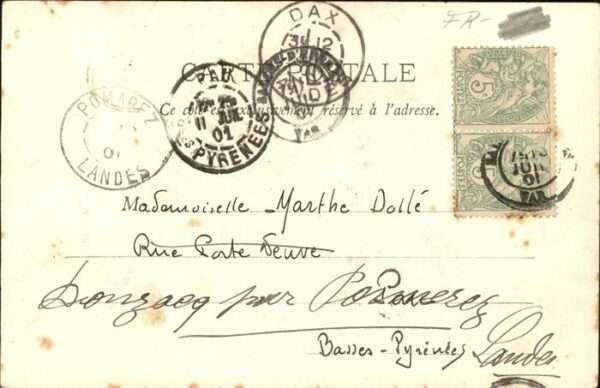 FR-
DAX
CARTE POSTALE
Ce côté est exclusivement réservé à l'adresse.
POMAREZ
01
LANDES
PAU
11 JUIL
01
PYRENEES
VAR
5
5
JUIL
01
VAR
Mademoiselle Marthe Dollé
Rue Porte Neuve
Donzacq par Pomarez
Pau
Basses-Pyrénées
Landes